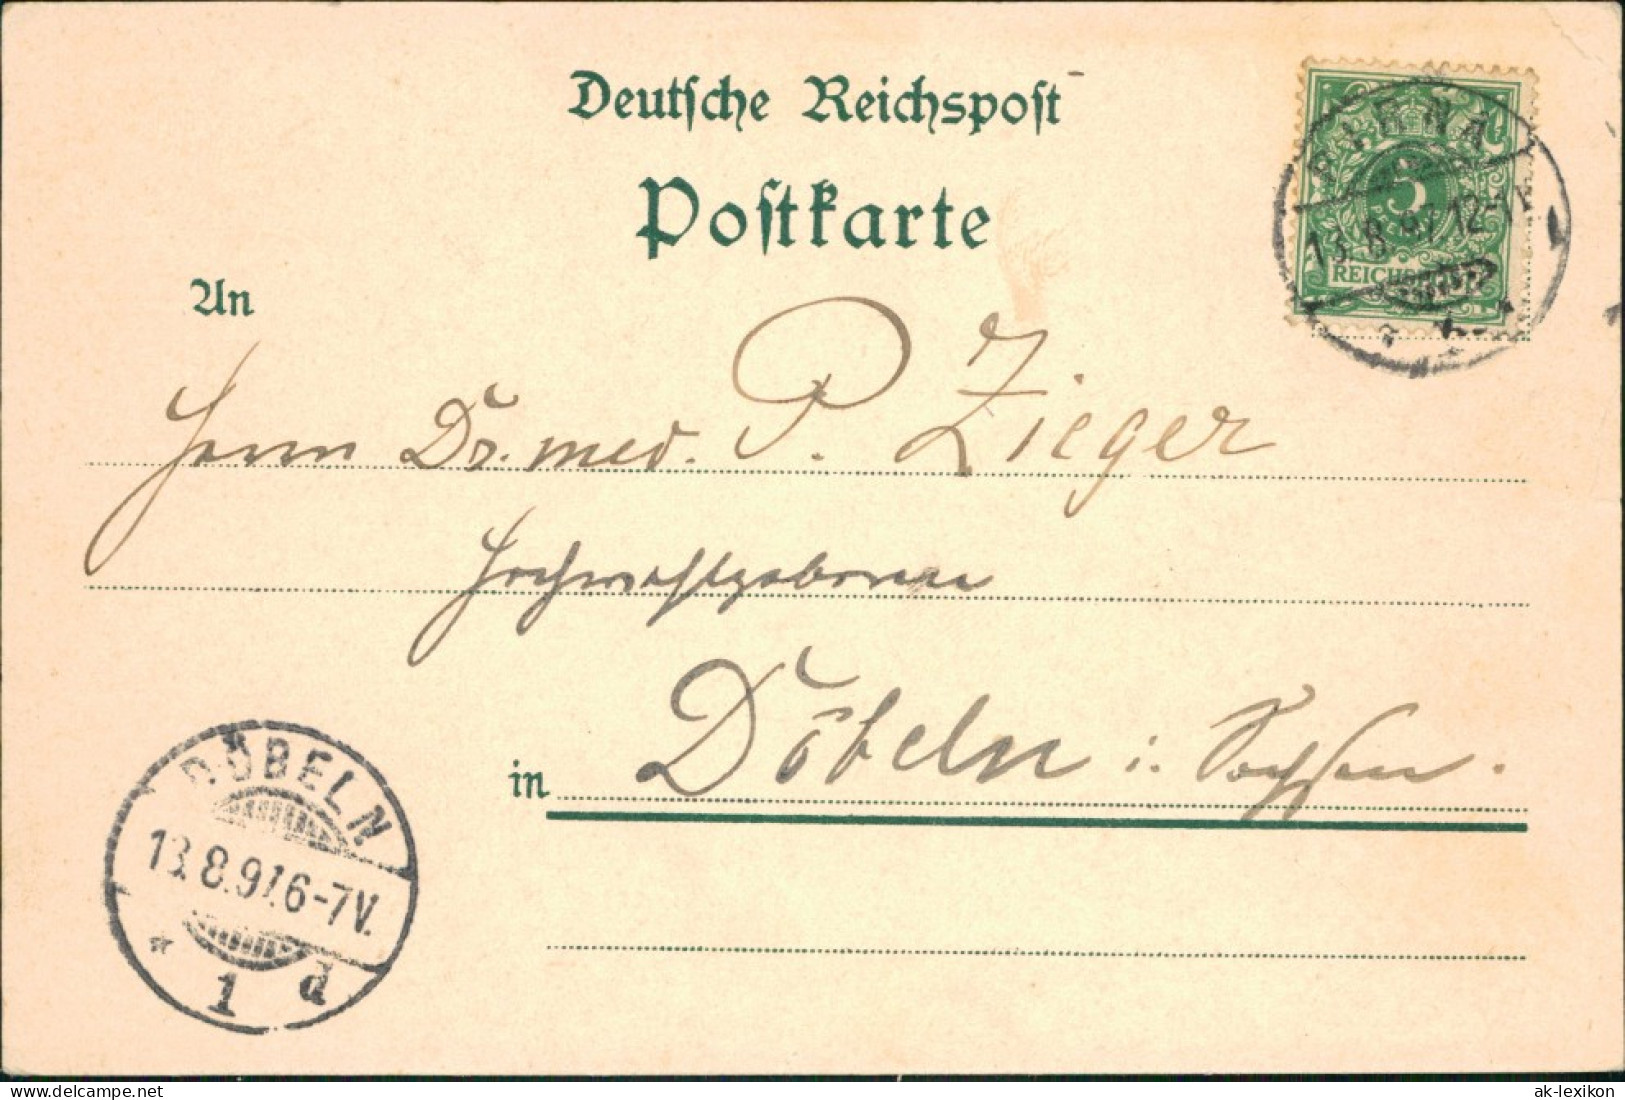 Deutsche Reichspost
Postkarte
PIRNA
5
13.8.97.12-1V
REICHSPOST
An
Herrn Dr. med. P. Zieger
Hochwohlgeboren
in Döbeln i. Sachsen.
DÖBELN
13.8.97.6-7V.
* 1 d
www.delcampe.net
ak-lexikon